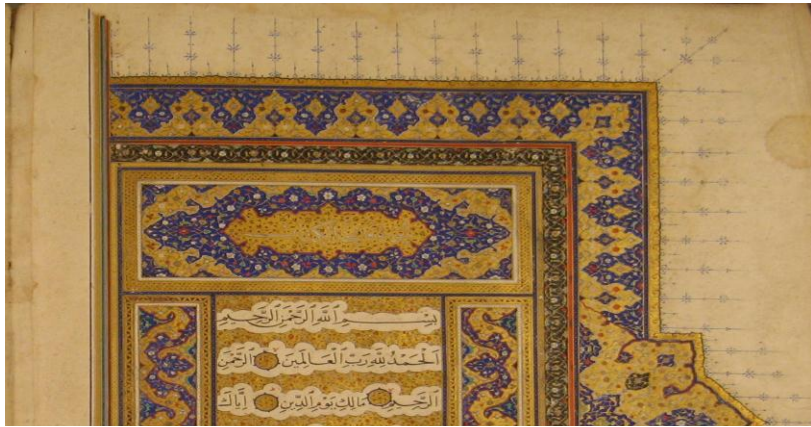 بِسْمِ ٱللَّهِ ٱلرَّحْمَٰنِ ٱلرَّحِيمِ
ٱلْحَمْدُ لِلَّهِ رَبِّ ٱلْعَالَمِينَ ٱلرَّحْمَٰنِ
ٱلرَّحِيمِ مَالِكِ يَوْمِ ٱلدِّينِ إِيَّاكَ